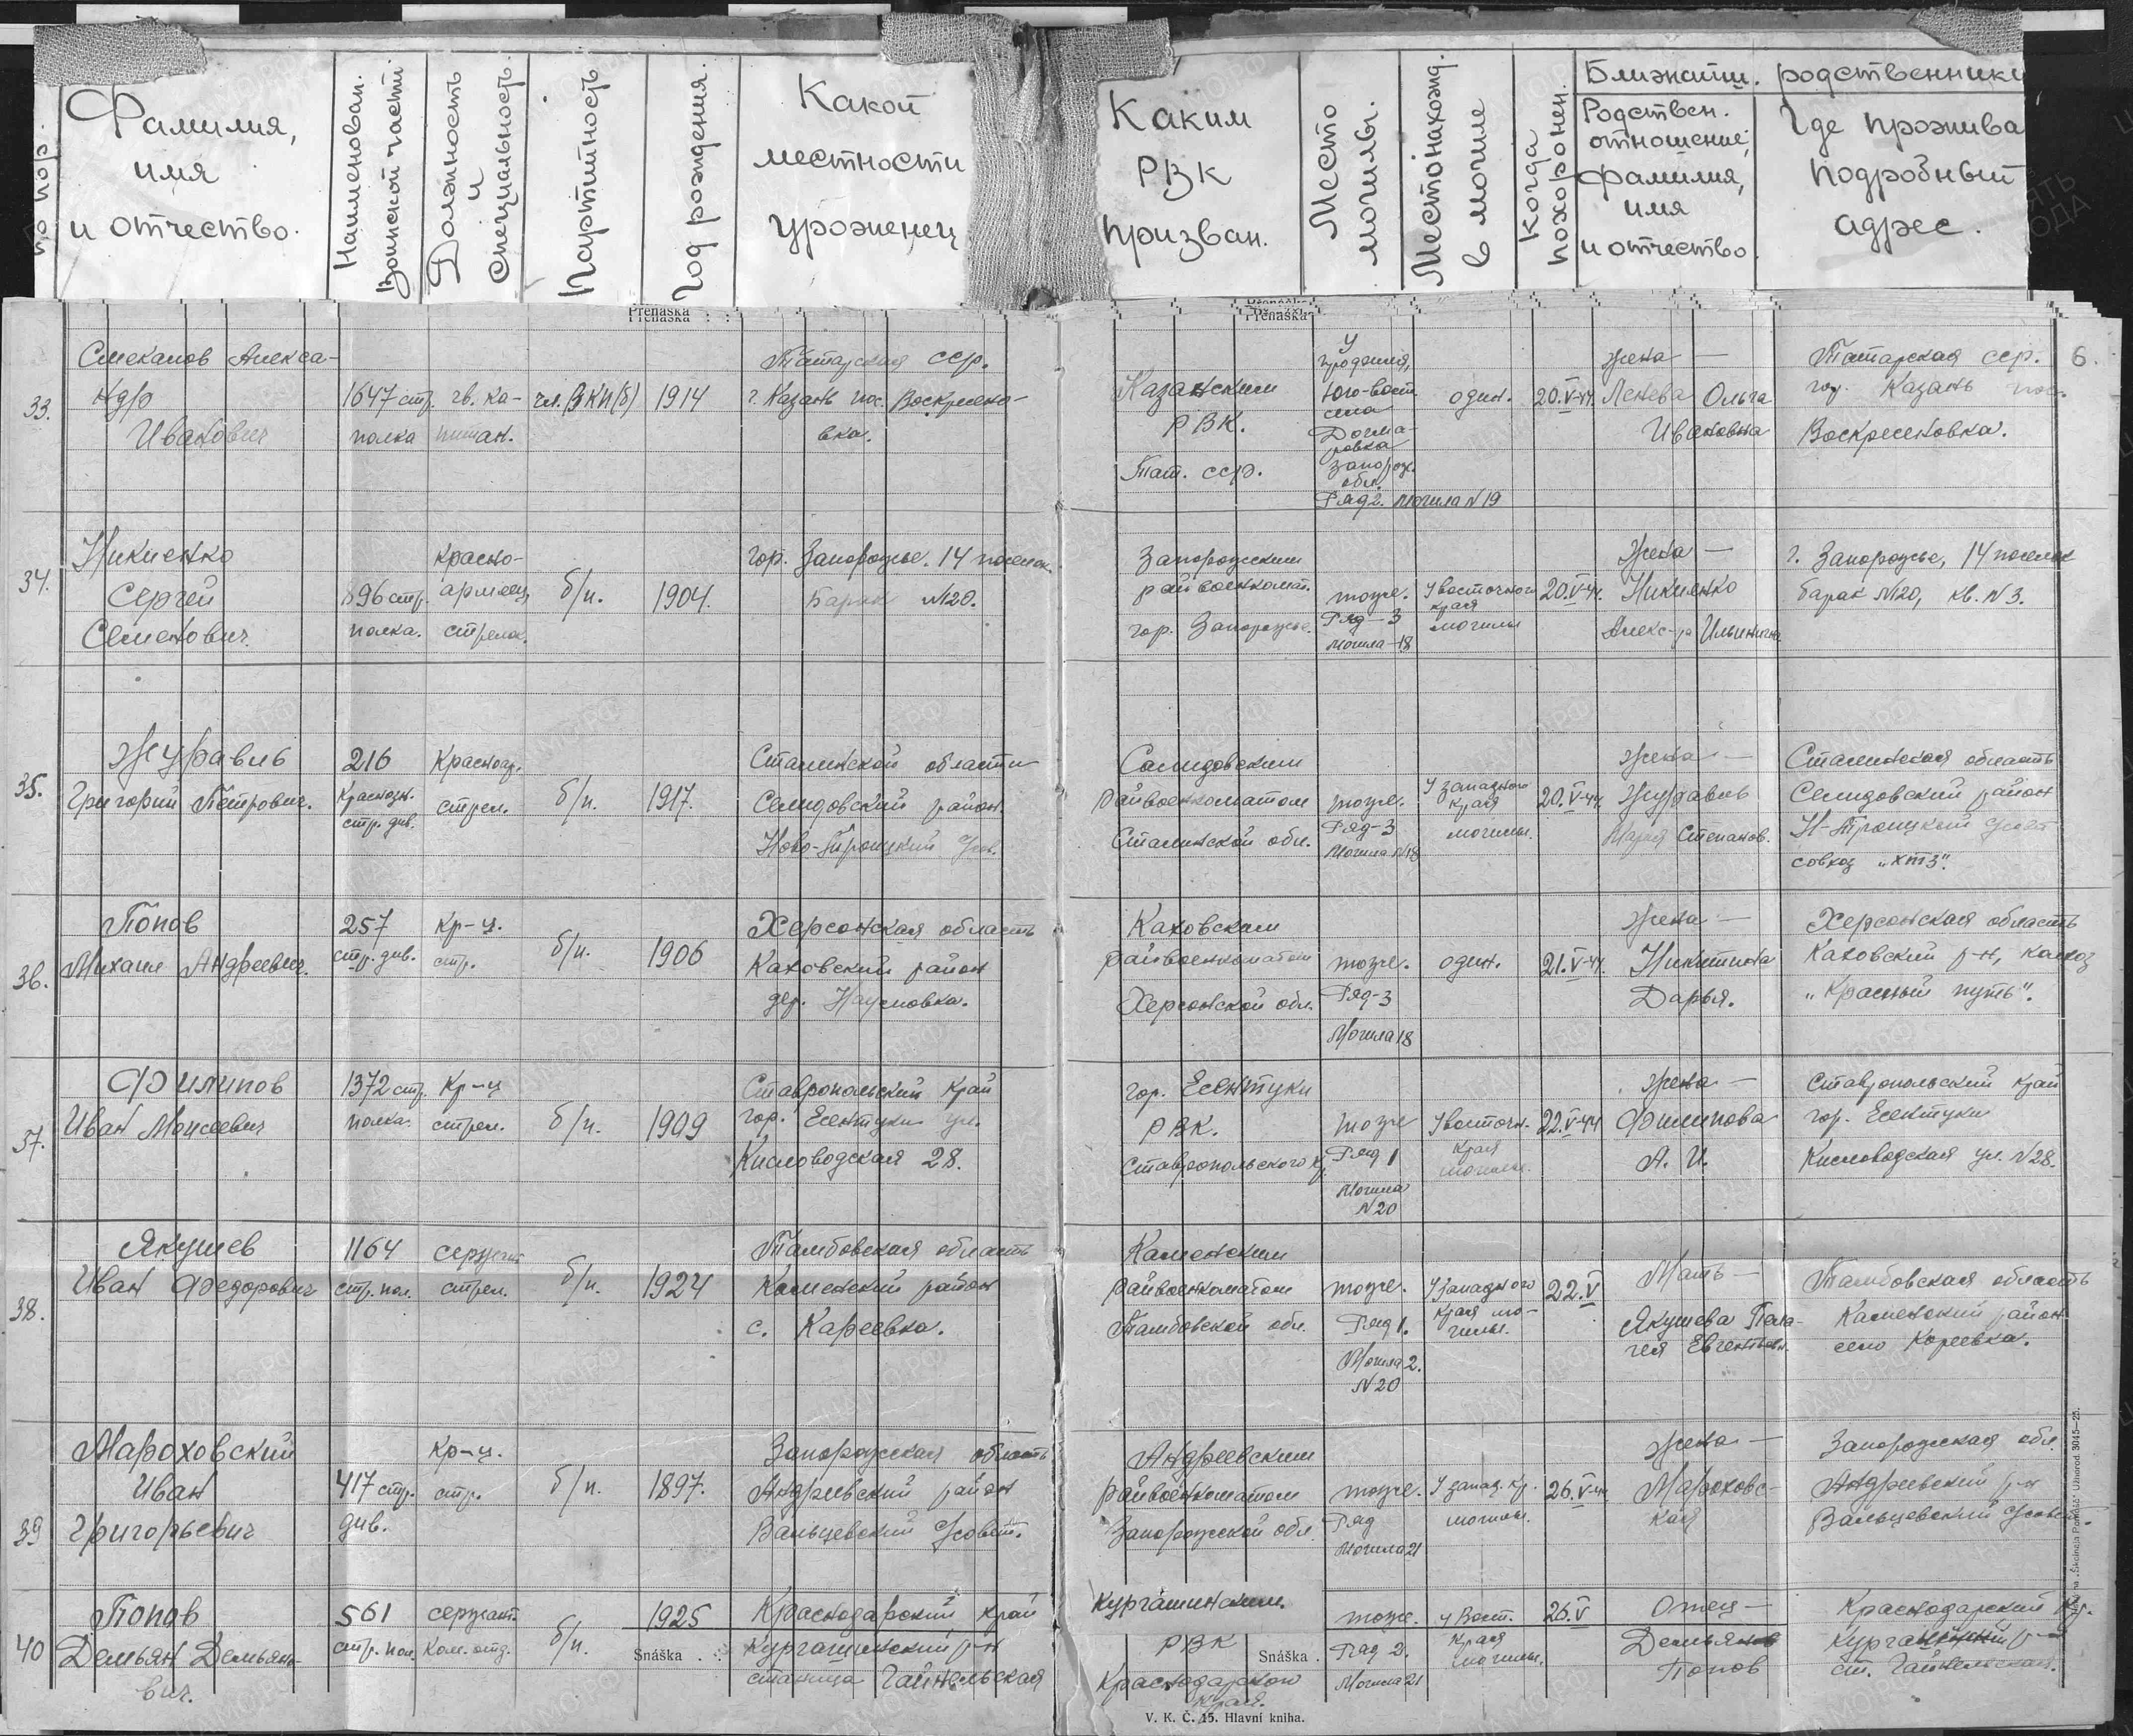 по пор.
Фамилия,
имя
и отчество.
Наименован.
воинской части.
Должность
и
специальность.
Партийность
Год рождения.
Какой
местности
уроженец
Каким
РВК
призван.
Место
могилы.
Местонахожд.
в могиле
Когда
похоронен.
Ближайш. родственники
Родствен.
отношение,
фамилия,
имя
и отчество
Где прожива
подробный
адрес.
Přenáška
Přenáška
6.
33.
Алекса-
ндр
Иванович
1647 стр.
полка
гв. ка-
питан.
чл. ВКП(б)
1914
Татарская сср.
г. Казань пос. Воскресено-
вка.
Казанским
РВК.
Тат. сср.
У
Юго-вост.
села
запорож.
обл.
Ряд 2. Могила N 19
один.
20.V-44.
жена —
Ольга
Ивановна
Татарская сср.
гор. Казань пос.
Воскресеновка.
34.
Никиенко
Сергей
Семенович.
896 стр.
полка.
красно-
армеец
стрелок.
б/п.
1904.
гор. Запорожье. 14 поселок.
Барак N20.
Запорожским
райвоенкомат.
гор. Запорожье.
тоже.
Ряд-3
Могила-18
У восточного
края
могилы
20.V-44.
Жена —
Никиенко
Алекс-ра Ильинична
г. Запорожье, 14 поселок
барак N20, кв. N 3.
35.
Журавль
Григорий Петрович.
216
Краснозн.
стр. див.
Красноар.
стрел.
б/п.
1917.
Сталинской области
Селидовский район.
Ново-Троицкий
Селидовским
райвоенкоматом
Сталинской обл.
тоже.
Ряд-3
Могила N18
У западного
края
могилы.
20.V-44.
Жена —
Журавль
Мария Степанов.
Сталинская область
Селидовский район
Н-Троицкий
совхоз „ХТЗ".
36.
Попов
Михаил Андреевич.
257
стр. див.
Кр-ц.
стр.
б/п.
1906
Херсонская область
Каховский район
дер.
Каховским
райвоенкоматом
Херсонской обл.
тоже.
Ряд-3
Могила 18
один.
21.V-44.
Жена —
Никитина
Дарья.
Херсонская область
Каховский р-н, колхоз
„Красный путь".
37.
Филипов
Иван Моисеевич
1372 стр.
полка.
Кр-ц
стрел.
б/п.
1909
Ставропольский Край
гор. Есентуки ул.
Кисловодская 28.
гор. Есентуки
РВК.
Ставропольского Кр.
тоже
Ряд 1
Могила
N20
У восточн.
края
могилы.
22.V-44
Жена —
Филипова
А. И.
Ставропольский край
гор. Есентуки
Кисловодская ул. N28.
38.
Якушев
Иван Федорович
1164
стр. пол.
сержант
стрел.
б/п.
1924
Тамбовская область
Каменский район
с. Кареевка.
Каменским
райвоенкоматом
Тамбовской обл.
тоже.
Ряд 1.
Могила 2.
N20
У Западного
края мо-
гилы.
22.V
Мать —
Якушева Пела-
гея
Тамбовская область
Каменский район
село Кореевка.
39
Мароховский
Иван
Григорьевич
417 стр.
див.
Кр-ц.
стр.
б/п.
1897.
Запорожская область
Андреевский район
Вальцевский
Андреевским
райвоенкоматом
Запорожской обл.
тоже.
Ряд
Могила 21
У запад. кр.
могилы.
26.V-44
Жена —
Мароховс-
кая
Запорожская обл.
Андреевский р-н
Вальцевский
40
Попов
Демьян Демьяно-
вич.
561
стр. пол.
сержант
Ком. отд.
б/п.
1925
Краснодарский край
Курганинский р-н
станица
Snáška
Курганинским.
РВК
Краснодарского
Края.
Snáška
тоже.
Ряд 2.
Могила 21
у Вост.
Края
могилы.
26.V
Отец —
Демьян
Попов
Краснодарский кр.
р-н
ст.
V. K. Č. 15. Hlavní kniha.